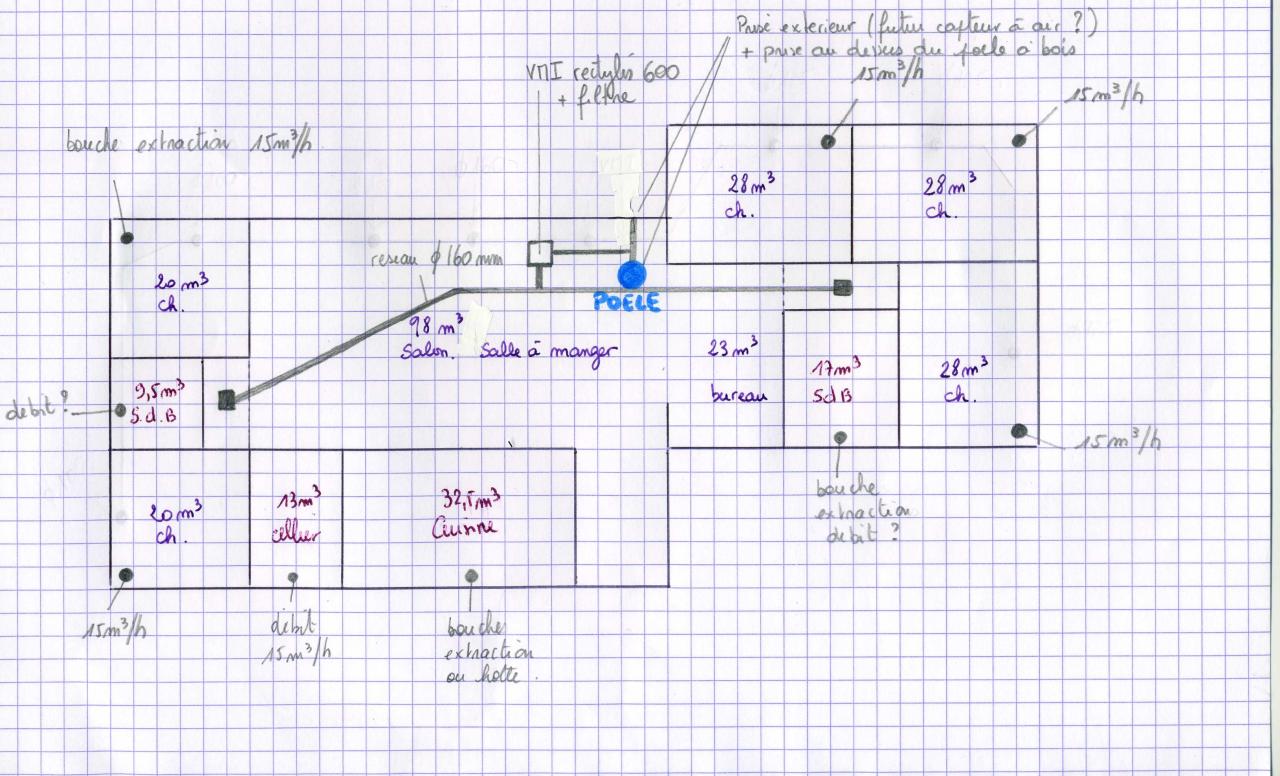 Prise exterieur (futur capteur à air ?)
+ prise au dessus du poele à bois
VMI rectylés 600
+ filtre
15 m³/h
15 m³/h
bouche extraction 15 m³/h
28 m³
ch.
28 m³
ch.
reseau ϕ 160 mm
20 m³
ch.
POELE
98 m³
Salon.
Salle à manger
23 m³
bureau
17 m³
SdB
28 m³
ch.
debit ?
9,5 m³
S.d.B
15 m³/h
20 m³
ch.
13 m³
cellier
32,5 m³
Cuisine
bouche
extraction
debit ?
15 m³/h
debit
15 m³/h
bouche
extraction
ou hotte.